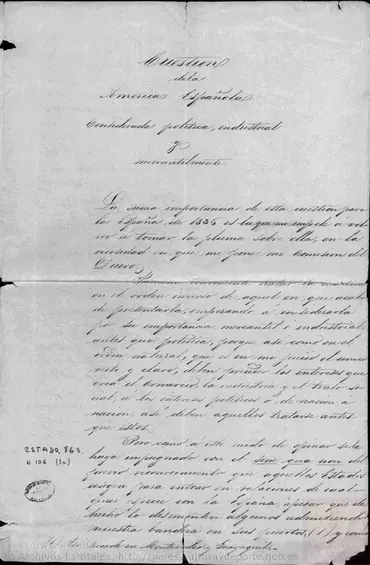 Cuestion
de la
America Española
Considerada politica, industrial
y
mercantilmente.
La suma importancia de esta cuestion para
la España de 1836 es la que me impele a vol-
ver á tomar la pluma sobre ella, en la
ociosidad en que me pone mi comision del
Duero.
en el orden inverso de aquel en que acabo
de presentarla, empezando a considerarla
por su importancia mercantil e industrial,
antes que politica; porque asi como en el
orden natural, que es en mi juicio el mas
recto y claro, deben preceder los intereses que
crea el comercio, la industria y el trato so-
cial, a los intereses politicos de nacion á
nacion, asi deben aquellos tratarse antes
que estos.
Pero como a este modo de opinar se le
haya impugnado con el sine qua non del
previo reconocimiento que aquellos Estados
exigen para entrar en relaciones de cual-
quier especie con la España, apesar que de
hecho lo desmienten algunos admitiendo
nuestra bandera en sus puertos, (1) y como
ESTADO, 863
N 102 (1a)
(1) Asi sucede en Montevideo, Guayaquil
Archivos Estatales, http://pares.